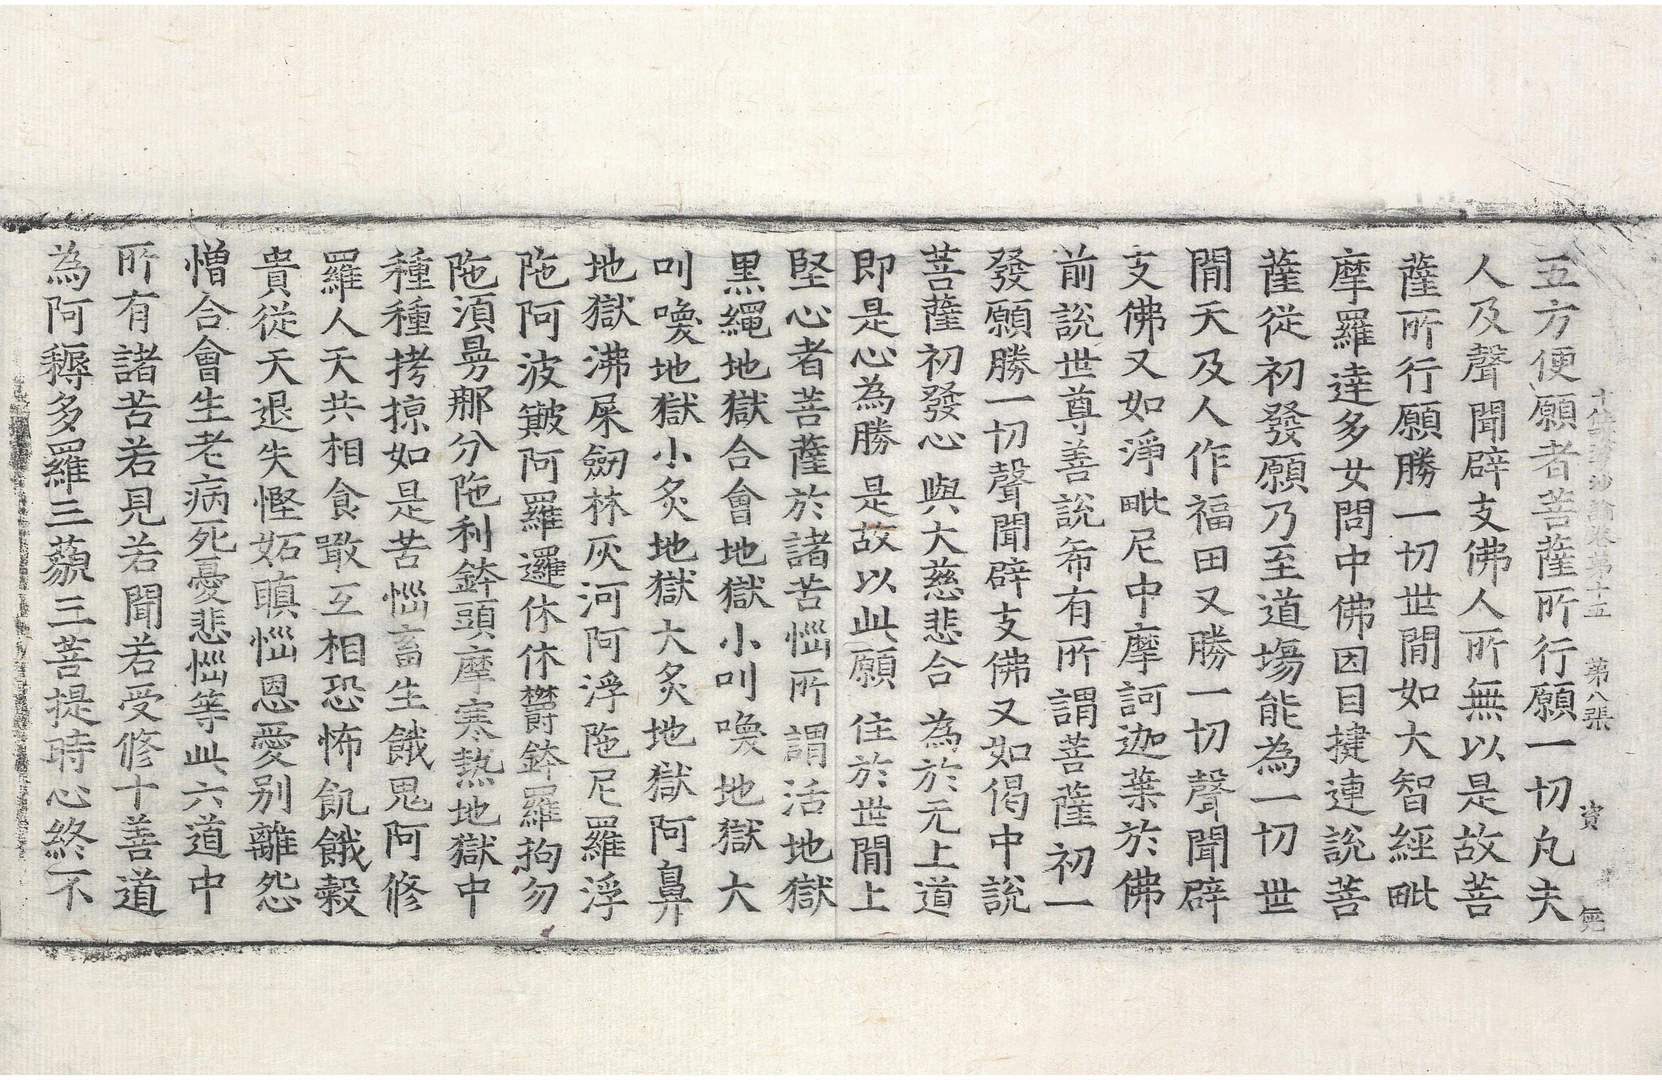 十住毗婆沙論卷第十五 第八張 資
五方便願者菩薩所行願一切凡夫
人及聲聞辟支佛人所無以是故菩
薩所行願勝一切世間如大智經毗
摩羅達多女問中佛因目揵連說菩
薩從初發願乃至道場能為一切世
間天及人作福田又勝一切聲聞辟
支佛又如淨毗尼中摩訶迦葉於佛
前說世尊善說希有所謂菩薩初一
發願勝一切聲聞辟支佛又如偈中說
菩薩初發心 與大慈悲合 為於无上道
即是心為勝 是故以此願 住於世間上
堅心者菩薩於諸苦惱所謂活地獄
黑繩地獄合會地獄小叫喚地獄大
叫喚地獄小炙地獄大炙地獄阿鼻
地獄沸屎劒林灰河阿浮陁尼羅浮
陁阿波簸阿羅邏休休欝鉢羅拘勿
陁湏曼那分陁利鉢頭摩寒熱地獄中
種種拷掠如是苦惱畜生餓鬼阿修
羅人天共相食噉互相恐怖飢餓穀
貴從天退失慳妬瞋惱恩愛别離怨
憎合會生老病死憂悲惱等此六道中
所有諸苦若見若聞若受修十善道
為阿耨多羅三藐三菩提時心終不